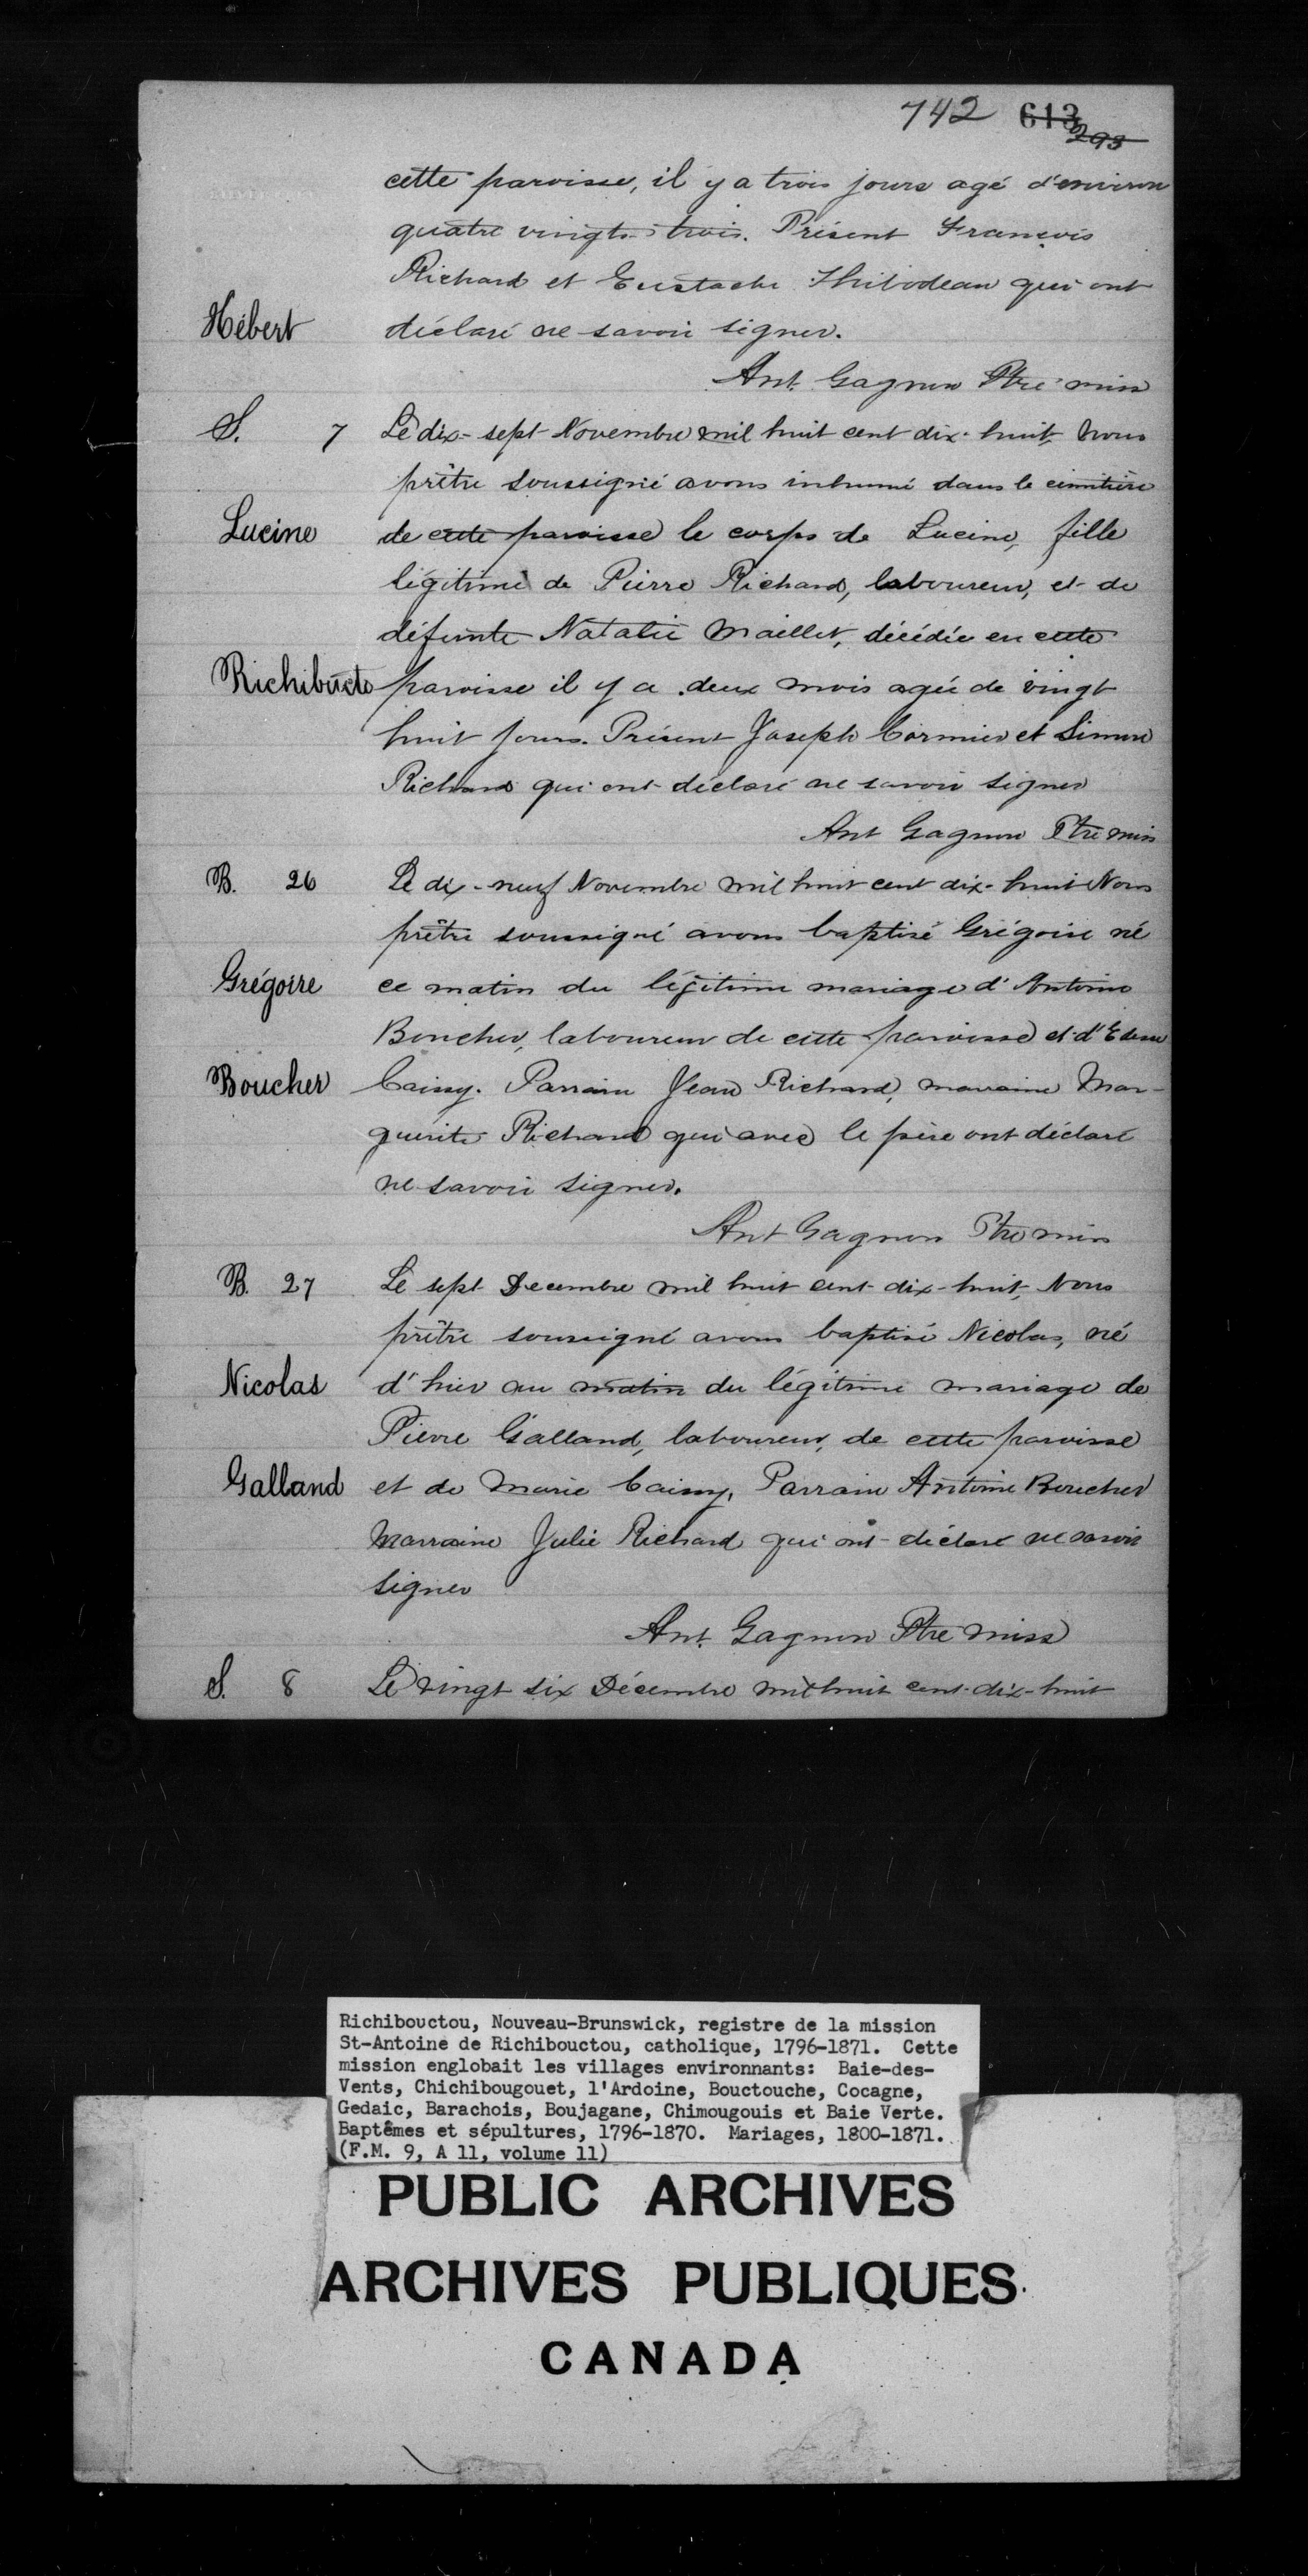 742 613
293
cette paroisse, il y a trois jours agé d'environ
quatre vingts trois. Présent François
Richard et Eustache Thibodeau qui ont
Hébert déclaré ne savoir signer.
Ant. Gagnon Ptre miss
S. 7 Le dix-sept Novembre mil huit cent dix-huit, Nous
prêtre soussigné avons inhumé dans le cimitière
Lucine de cette paroisse le corps de Lucine, fille
légitime de Pierre Richard, laboureur, et de
défunte Natalie Maillet, décédée en cette
Richibucto paroisse il y a deux mois agée de vingt
huit jours. Présent Joseph Cormier et Simon
Richard qui ont déclaré ne savoir signer
Ant Gagnon Ptre miss
B. 26 Le dix-neuf Novembre mil huit cent dix-huit Nous
prêtre soussigné avons baptisé Grégoire né
Grégoire ce matin du légitime mariage d'Antoine
Boucher, laboureur de cette paroisse et d'
Boucher Caissy. Parrain Jean Richard, marraine Mar-
guerite Richard qui avec le père ont déclaré
ne savoir signer.
Ant Gagnon Ptre miss
B. 27 Le sept Decembre mil huit cent dix-huit, Nous
prêtre soussigné avons baptisé Nicolas, né
Nicolas d'hier au matin du légitime mariage de
Pierre Galland, laboureur, de cette paroisse
Galland et de Marie Caissy, Parrain Antoine Boucher
Marraine Julie Richard qui ont déclaré ne savoir
signer
Ant. Gagnon Ptre miss
S. 8 Le vingt six Décembre mil huit cent-dix-huit
Richibouctou, Nouveau-Brunswick, registre de la mission
St-Antoine de Richibouctou, catholique, 1796-1871. Cette
mission englobait les villages environnants: Baie-des-
Vents, Chichibougouet, l'Ardoine, Bouctouche, Cocagne,
Gedaic, Barachois, Boujagane, Chimougouis et Baie Verte.
Baptêmes et sépultures, 1796-1870. Mariages, 1800-1871.
(F.M. 9, A 11, volume 11)
PUBLIC ARCHIVES
ARCHIVES PUBLIQUES
CANADA